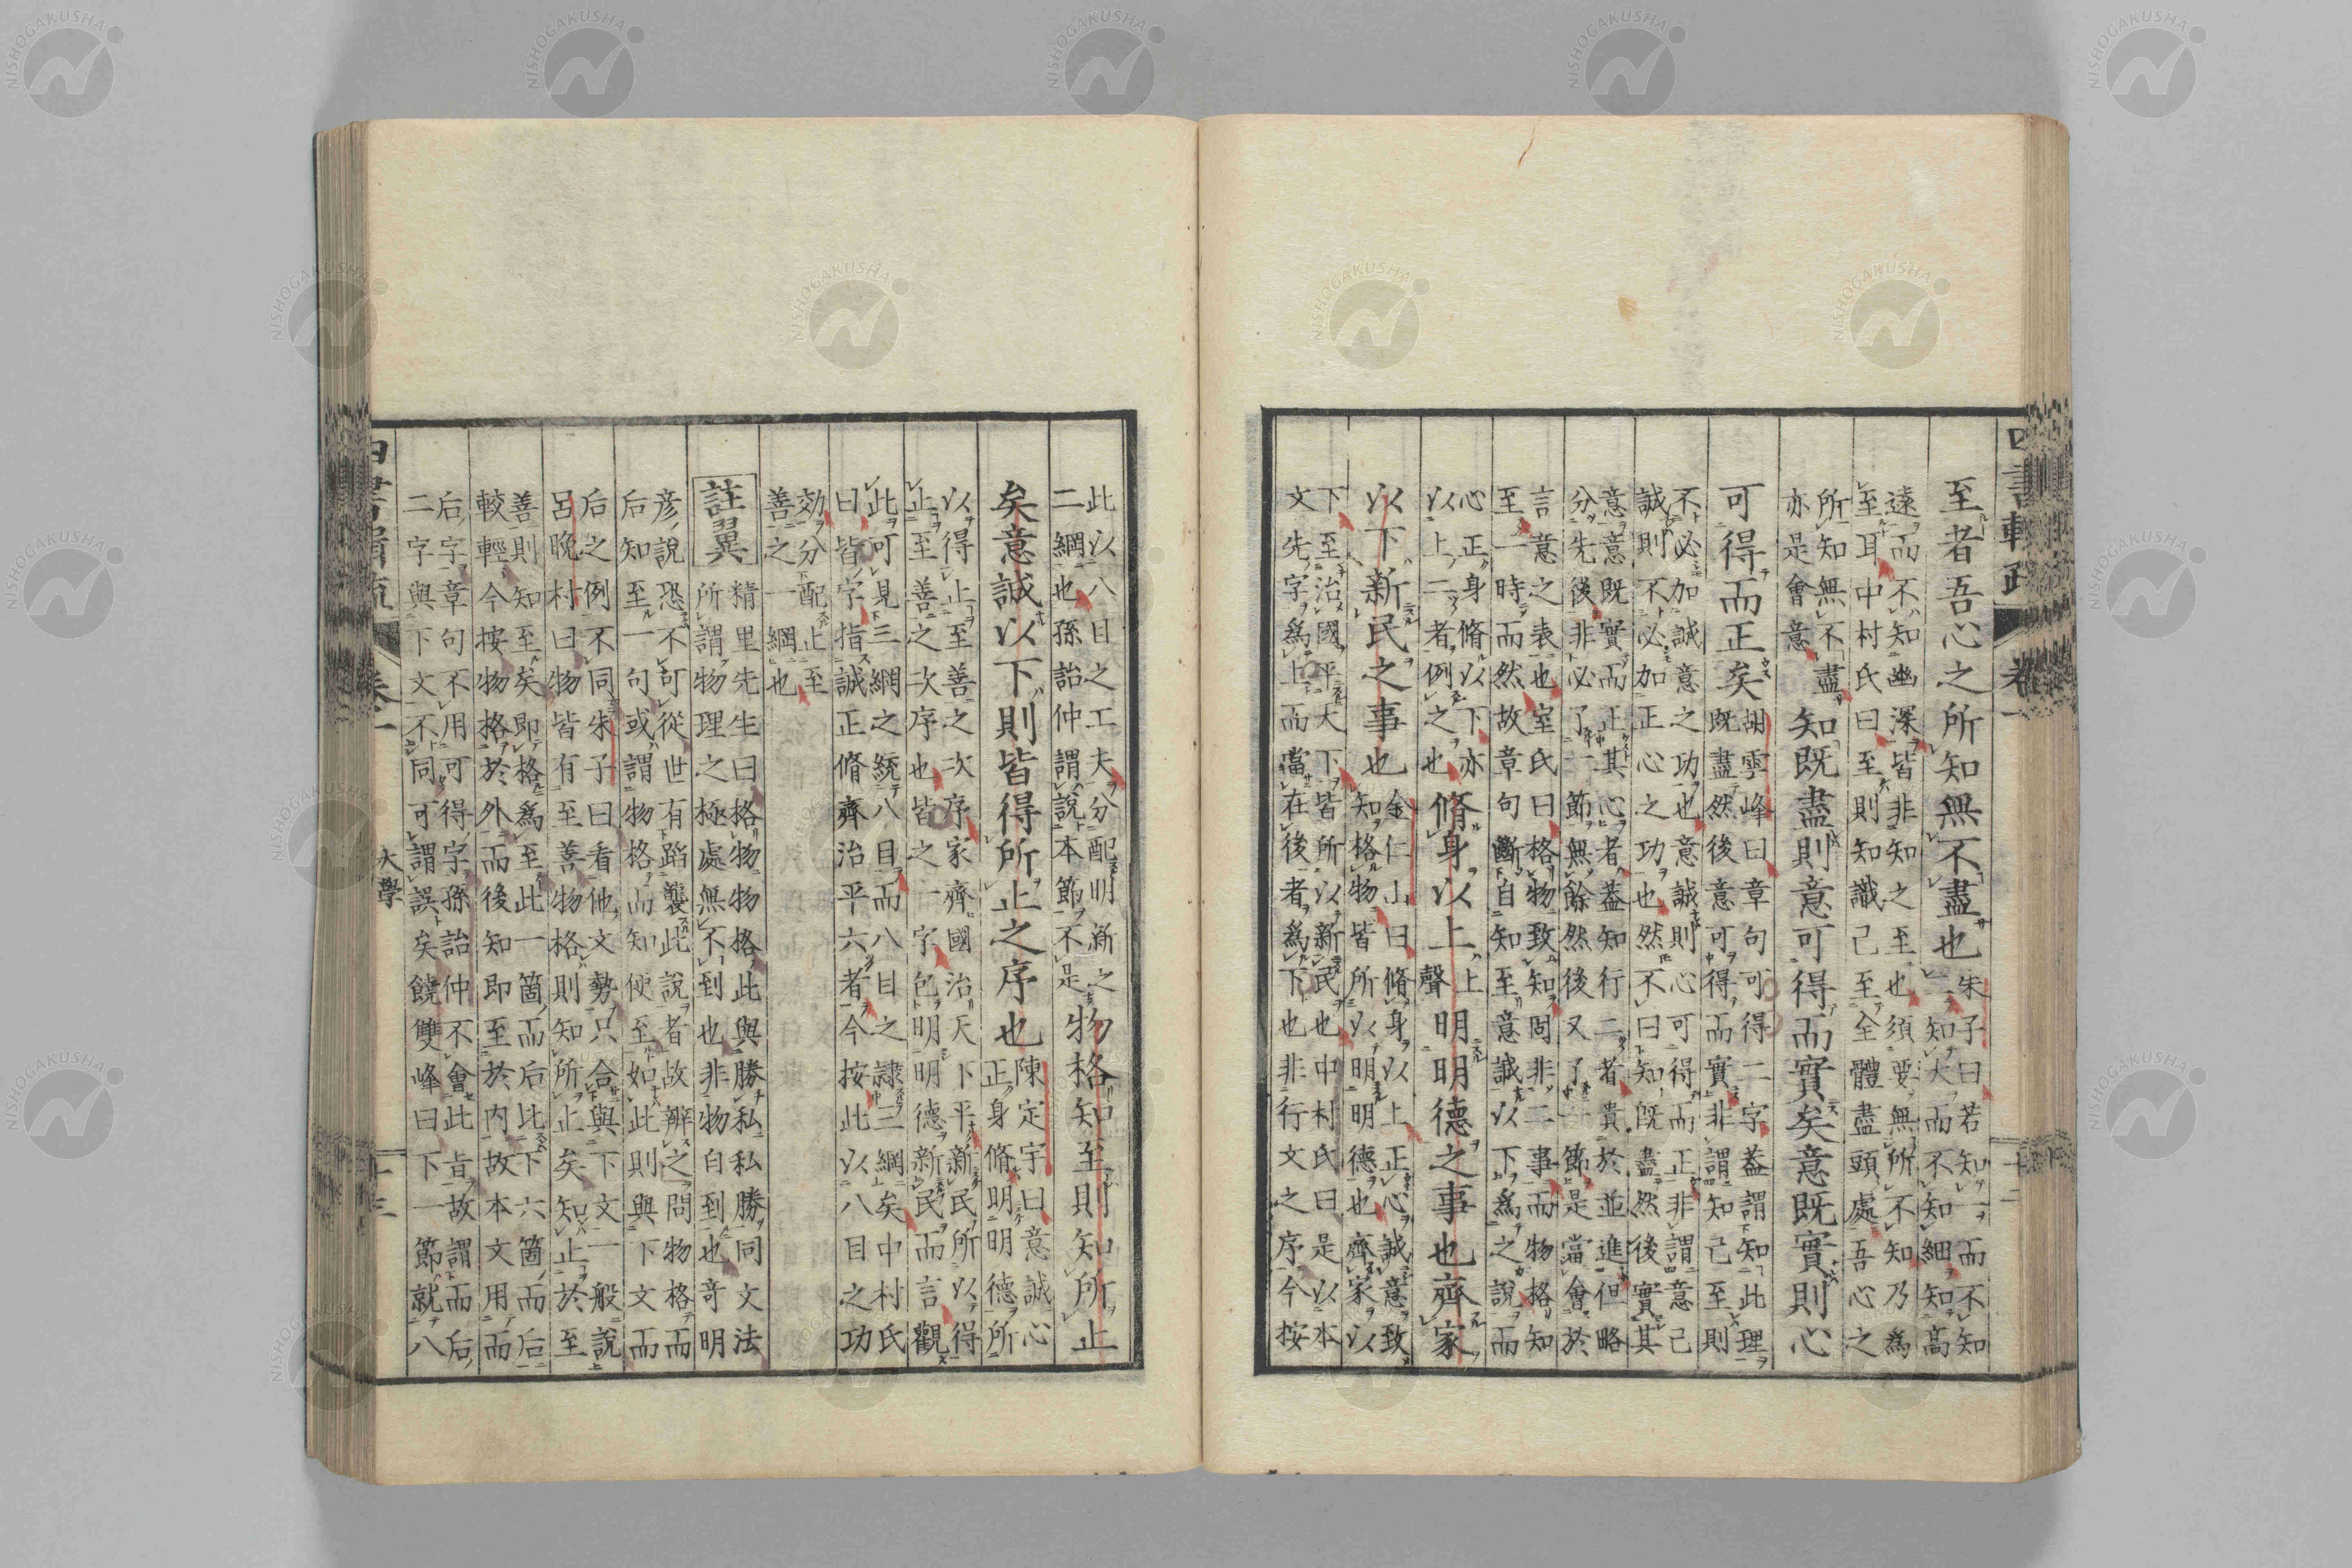 四書輯疏 卷一 十二
至者吾心之所知無不盡也
朱子曰若知一而不知
二知大而不知細知高
遠而不知幽深皆非知之至也須要無所不知乃為
至耳中村氏曰至則知識已至全體盡頭處吾心之
所知無不盡
亦是會意
知既盡則意可得而實矣意既實則心
可得而正矣
胡雲峰曰章句可得二字蓋謂知此理
既盡然後意可得而實非謂知已至則
不必加誠意之功也意誠則心可得而正非謂意已
誠則不必加正心之功也然不曰知既盡然後實其
意意既實而正其心者蓋知行二者貴於並進但略
分先後非必了一節無餘然後又了一節是當會於
言意之表也室氏曰格物致知固非二事而物格知
至一時而然故章句斷自知至意誠以下為之說而
心正身脩以下亦
以上二者例之也
脩身以上
上
聲
明明德之事也齊家
以下新民之事也
金仁山曰脩身以上正心誠意致
知格物皆所以明明德也齊家以
下至治國平天下皆所以新民也中村氏曰是以本
文先字為上而當在後者為下也非行文之序今按
此以八目之工夫分配明新之
二綱也孫詒仲謂說本節不是
物格知至則知所止
矣意誠以下則皆得所止之序也
陳定宇曰意誠心
正身脩明明德所
以得止至善之次序家齊國治天下平新民所以得
止至善之次序也皆之一字包明明德新民而言觀
此可見三綱之統八目而八目之隸三綱矣中村氏
曰皆字指誠正脩齊治平六者今按此以八目之功
効分配止至
善之一綱也
註翼
精里先生曰格物物格此與勝私私勝同文法
所謂物理之極處無不到也非物自到也奇明
彦說恐不可從世有蹈襲此說者故辨之問物格而
后知至一句或謂物格而知便至如此則與下文而
后之例不同朱子曰看他文勢只合與下文一般說
呂晚村曰物皆有至善物格則知所止矣知止於至
善則知至矣即格為至此一箇而后比下六箇而后
較輕今按物格於外而後知即至於內故本文用而
后字章句不用可得字孫詒仲不會此旨故謂而后
二字與下文不同可謂誤矣饒雙峰曰下一節就八
四書輯疏 卷一 大學 十三